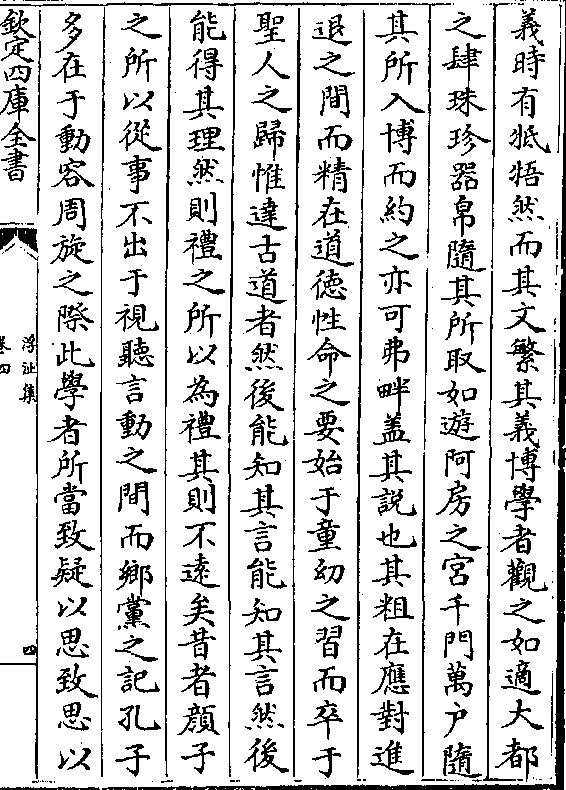 義時有牴牾然而其文繁其義博學者觀之如適大都
之肆珠珍器帛隨其所取如遊阿房之宮千門萬户隨
其所入博而約之亦可弗畔蓋其説也其粗在應對進
退之間而精在道德性命之要始于童幼之習而卒于
聖人之歸惟達古道者然後能知其言能知其言然後
能得其理然則禮之所以為禮其則不逺矣昔者顔子
之所以從事不出于視聽言動之間而鄉黨之記孔子
多在于動容周旋之際此學者所當致疑以思致思以
欽定四庫全書
浮沚集
卷四
四